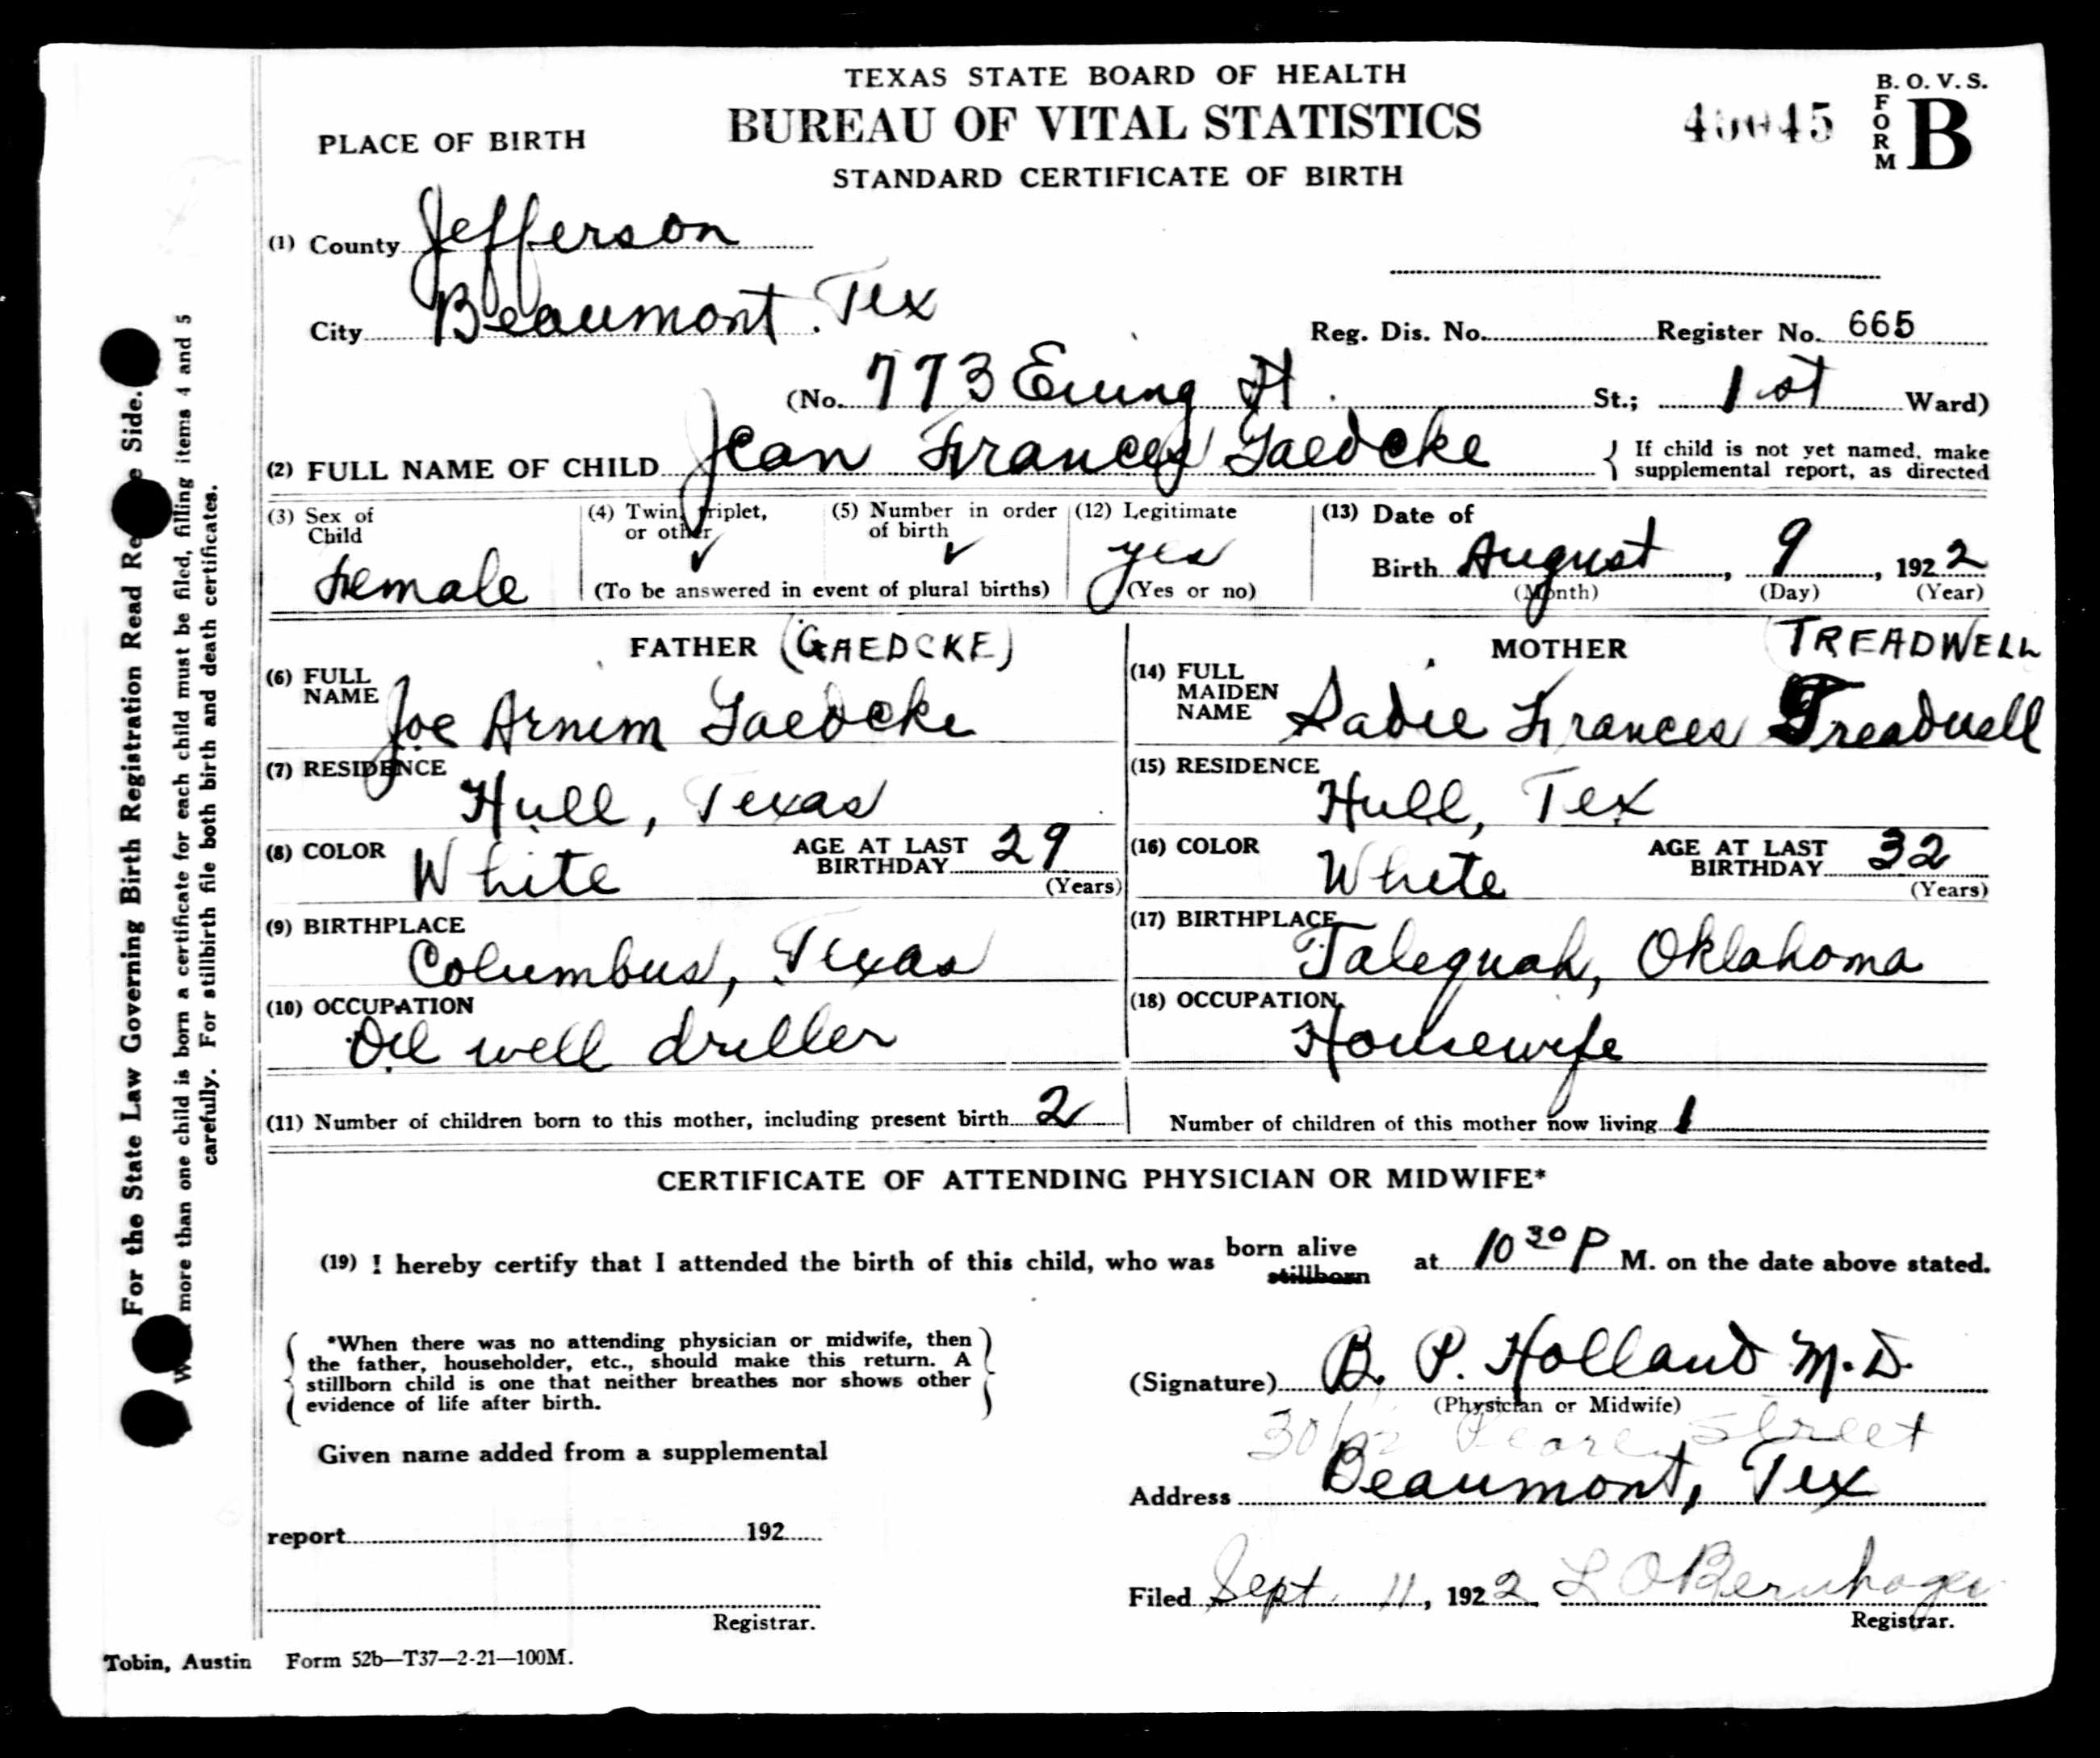 TEXAS STATE BOARD OF HEALTH
BUREAU OF VITAL STATISTICS
STANDARD CERTIFICATE OF BIRTH
B. O. V. S.
FORM B
PLACE OF BIRTH
(1) County Jefferson
City Beaumont. Tex
Reg. Dis. No. Register No. 665
(No. 773 Ewing St. St.; 1st Ward)
(2) FULL NAME OF CHILD Jean Frances Gaedcke { If child is not yet named, make supplemental report, as directed
(3) Sex of Child Female
(4) Twin, triplet, or other ✓
(5) Number in order of birth ✓
(To be answered in event of plural births)
(12) Legitimate yes (Yes or no)
(13) Date of Birth August, 9, 1922
(Month) (Day) (Year)
FATHER (GAEDCKE)
(6) FULL NAME Joe Arnim Gaedcke
(7) RESIDENCE Hull, Texas
(8) COLOR White AGE AT LAST BIRTHDAY 29 (Years)
(9) BIRTHPLACE Columbus, Texas
(10) OCCUPATION Oil well driller
MOTHER TREADWELL
(14) FULL MAIDEN NAME Sadie Frances Treadwell
(15) RESIDENCE Hull, Tex
(16) COLOR White AGE AT LAST BIRTHDAY 32 (Years)
(17) BIRTHPLACE Talequah, Oklahoma
(18) OCCUPATION Housewife
(11) Number of children born to this mother, including present birth 2 Number of children of this mother now living 1
CERTIFICATE OF ATTENDING PHYSICIAN OR MIDWIFE*
(19) I hereby certify that I attended the birth of this child, who was born alive stillborn at 10 30 P M. on the date above stated.
*When there was no attending physician or midwife, then
the father, householder, etc., should make this return. A
stillborn child is one that neither breathes nor shows other
evidence of life after birth.
(Signature) B. P. Holland M.D.
(Physician or Midwife)
Street
Address Beaumont, Tex
Given name added from a supplemental
report 192
Registrar.
Filed Sept. 11, 1922 L O Bernhagen
Registrar.
Tobin, Austin Form 52b—T37—2-21—100M.
For the State Law Governing Birth Registration Read Side.
more than one child is born a certificate for each child must be filed, filling items 4 and 5
carefully. For stillbirth file both birth and death certificates.